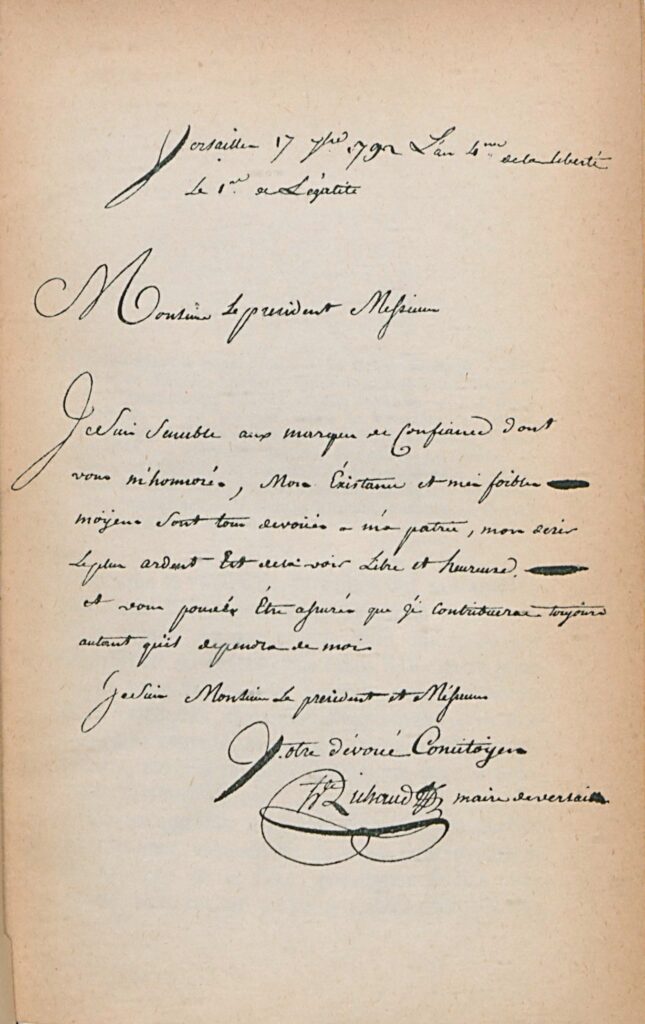 Versailles 17 7bre 1792 L'an 4me de la Liberté
Le 1er de L'égalité
Monsieur Le president Messieurs
Je Suis Sensible aux marques de Confiance dont
vous m'honnorés, Mon Éxistance et mes foibles
moyens Sont tous devoüés a ma patrie, mon desir
Le plus ardent Est de la voir Libre et heureuse.
et vous pouvés Être assurés que j'i contribuerai toujours
autant qu'il dependra de moi
Je Suis Monsieur Le president et Messieurs
Votre dévoué Concitoyen
Richaud maire de versailles